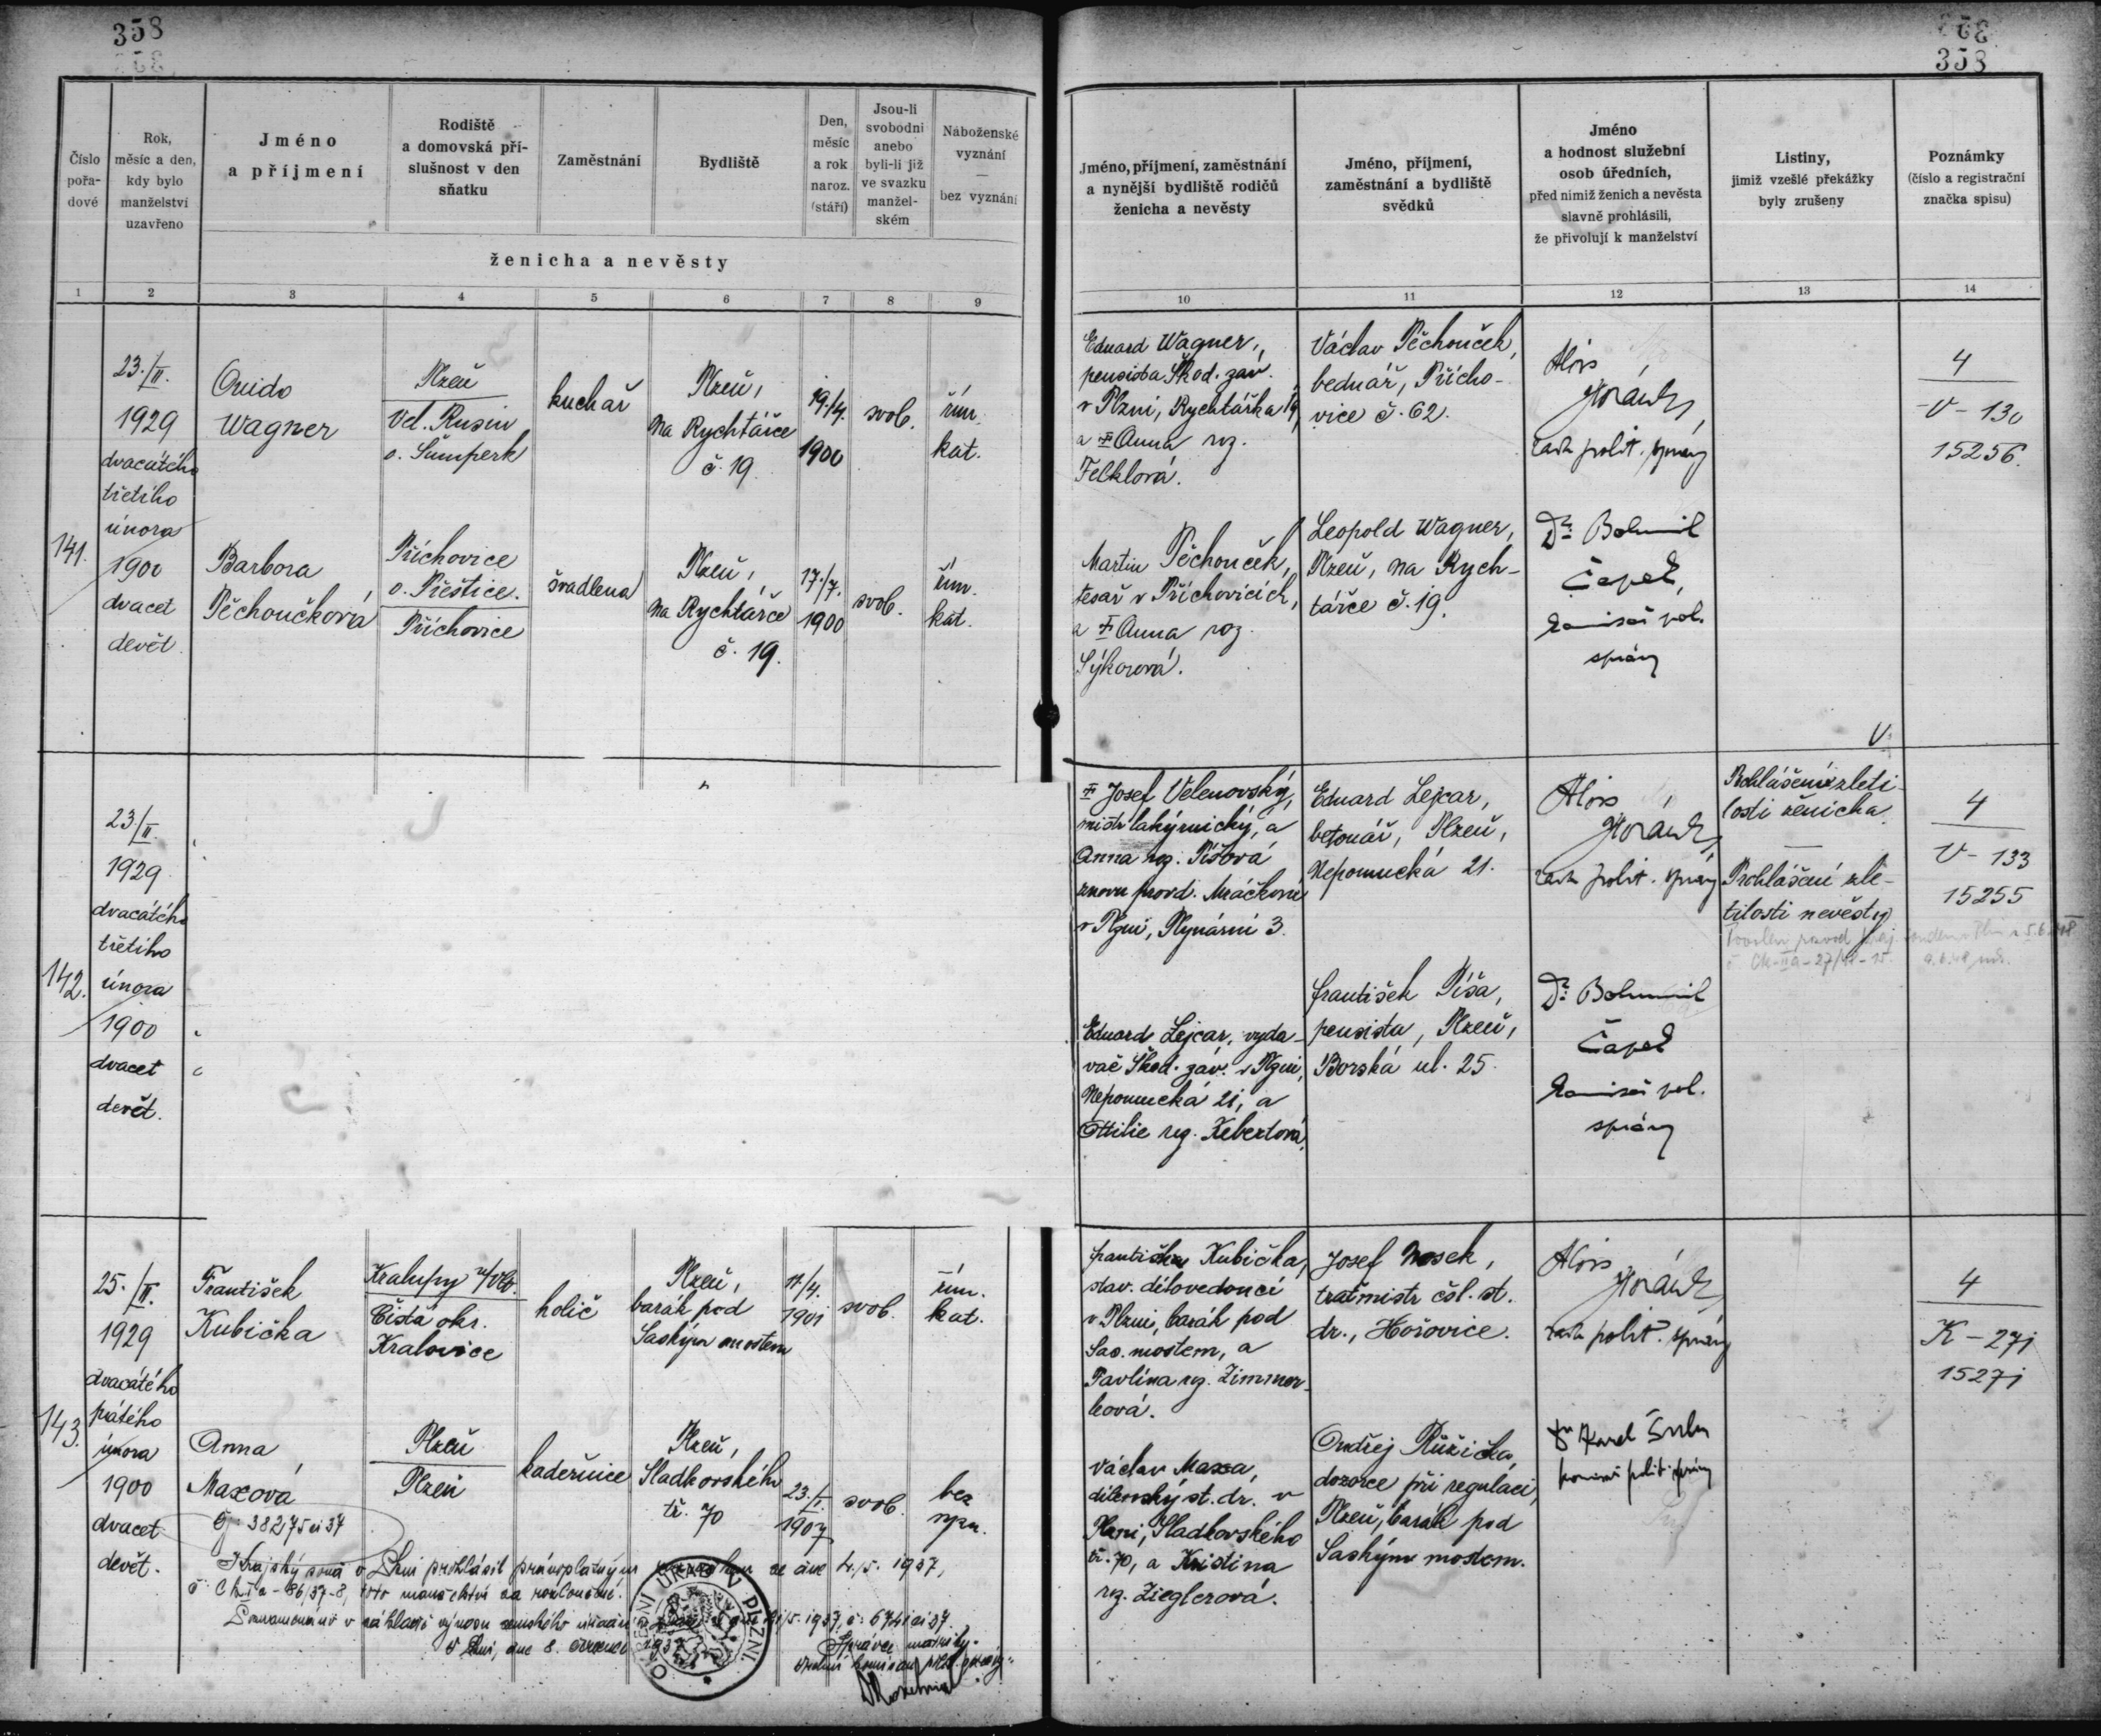 358
358
Číslo
pořa-
dové
Rok,
měsíc a den,
kdy bylo
manželství
uzavřeno
Jméno
a příjmení
Rodiště
a domovská pří-
slušnost v den
sňatku
Zaměstnání
Bydliště
Den,
měsíc
a rok
naroz.
(stáří)
Jsou-li
svobodni
anebo
byli-li již
ve svazku
manžel-
ském
Náboženské
vyznání
—
bez vyznání
ženicha a nevěsty
Jméno, příjmení, zaměstnání
a nynější bydliště rodičů
ženicha a nevěsty
Jméno, příjmení,
zaměstnání a bydliště
svědků
Jméno
a hodnost služební
osob úředních,
před nimiž ženich a nevěsta
slavně prohlásili,
že přivolují k manželství
Listiny,
jimiž vzešlé překážky
byly zrušeny
Poznámky
(číslo a registrační
značka spisu)
1 2 3 4 5 6 7 8 9 10 11 12 13 14
141.
23./II.
1929
dvacátého
třetího
února
1900
dvacet
devět.
Quido
Wagner
Plzeň
Vel. Rusin
o. Šumperk
kuchař
Plzeň,
Na Rychtářce
č. 19.
19./4.
1900
svob.
řím.
kat.
Barbora
Pěchoučková
Příchovice
o. Přeštice.
Příchovice
švadlena
Plzeň,
Na Rychtářce
č. 19.
17./7.
1900
svob.
řím.
kat.
Eduard Wagner,
pensista Škod. záv.
v Plzni, Rychtářka 19,
a † Anna roz.
Felklová.
Martin Pěchouček,
tesař v Příchovicích,
a † Anna roz.
Sýkorová.
Václav Pěchouček,
bednář, Přícho-
vice č. 62.
Leopold Wagner,
Plzeň, Na Rych-
tářce č. 19.
Alois
Horák,
rada polit. správy
Dr. Bohumil
Čapek,
komisař pol.
správy
4
V - 130
15256.
142.
23./II.
1929
dvacátého
třetího
února
1900
dvacet
devět.
† Josef Velenovský,
mistr lakýrnický, a
Anna roz. Píšová
znovu provd. Mráčková
v Plzni, Plynární 3.
Eduard Lejcar, vyda-
vač Škod. záv. v Plzni,
Nepomucká 21, a
Ottilie roz. Kebertová.
Eduard Lejcar,
betonář, Plzeň,
Nepomucká 21.
František Píša,
pensista, Plzeň,
Borská ul. 25.
Alois
Horák,
rada polit. správy
Dr. Bohumil
Čapek
komisař pol.
správy
V
Prohlášení zleti-
losti ženicha.
—
Prohlášení zle-
tilosti nevěsty
4
V - 133
15255
143.
25./II.
1929
dvacátého
pátého
února
1900
dvacet
devět.
František
Kubička
Kralupy n/Vlt.
Čistá okr.
Kralovice
holič
Plzeň,
barák pod
Saským mostem
17/4.
1901
svob.
řím.
kat.
Anna
Maxová
Plzeň
Plzeň
kadeřnice
Plzeň,
Sladkovského
tř. 70
23./I.
1907
svob.
bez
vyzn.
Čj. 38275 ai 37
Krajský soud v Plzni prohlásil právoplatným rozsudkem ze dne 4./5. 1937,
č. Ck Ia - 86/37-8, toto manželství za rozloučené.
v Plzni, dne 8. července 1937.
Správce matriky:
OKRESNÍ ÚŘAD V PLZNI
František Kubička,
stav. dílovedoucí
v Plzni, barák pod
Sas. mostem, a
Pavlína roz. Zimmer-
leová.
Václav Maxa,
dílenský st. dr. v
Plzni, Sladkovského
tř. 70, a Kristina
roz. Zieglerová.
Josef Nosek,
traťmistr čsl. st.
dr., Hořovice.
Ondřej Růžička,
dozorce při regulaci,
Plzeň, barák pod
Saským mostem.
Alois
Horák,
rada polit. správy
Karel
komisař polit. správy
4
K - 271
15271